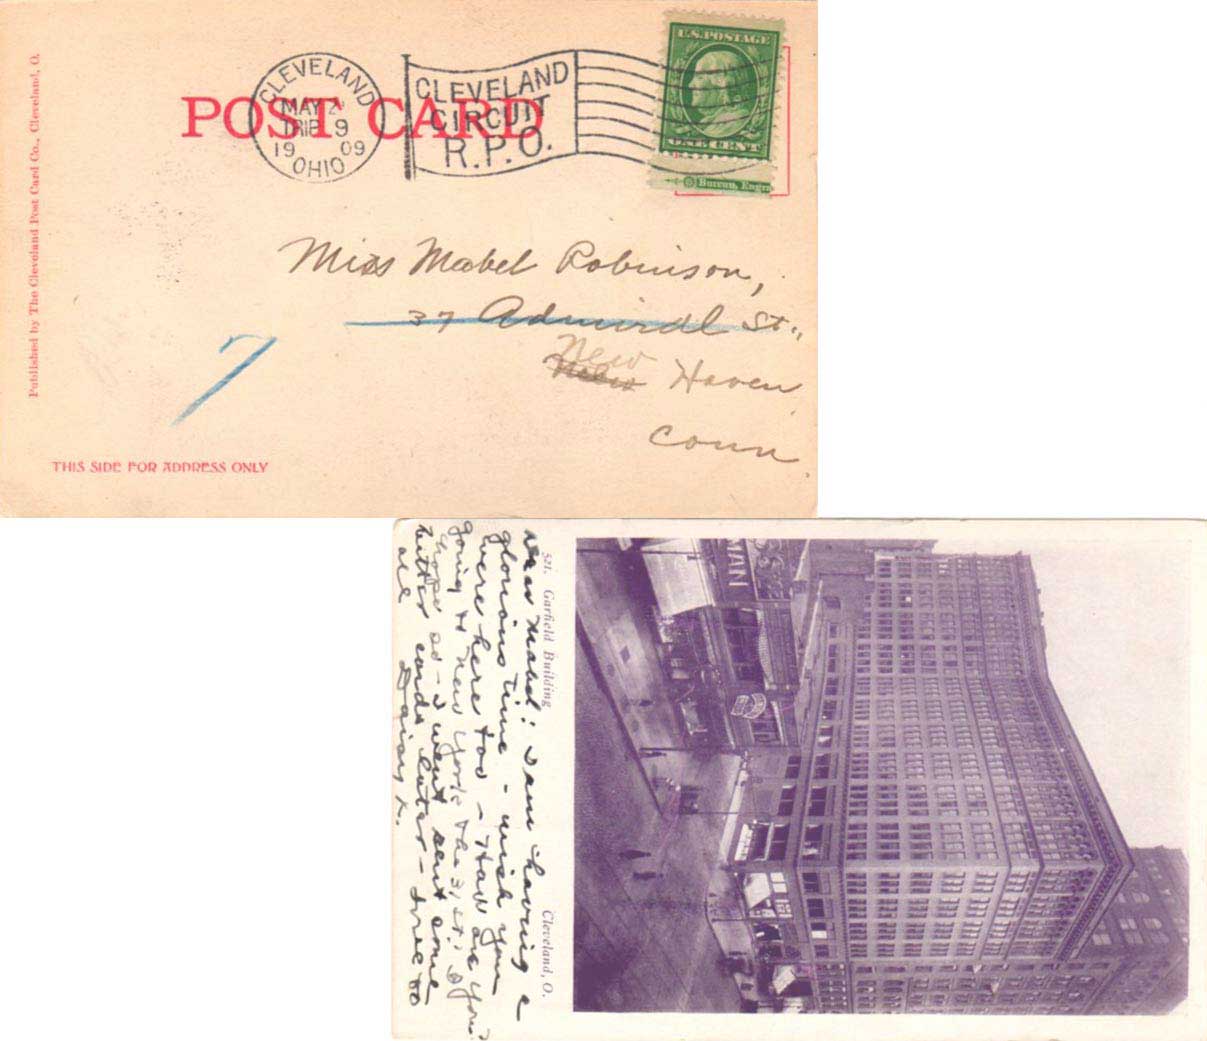 Published by The Cleveland Post Card Co., Cleveland, O.
POST CARD
CLEVELAND
MAY 2
TRIP 9
19 09
OHIO
CLEVELAND
CIRCUIT
R.P.O.
U.S. POSTAGE
ONE CENT
Bureau, Engra
Miss Mabel Robinson,
37 Admiral St.,
New Haven
Conn.
7
THIS SIDE FOR ADDRESS ONLY
521. Garfield Building Cleveland, O.
Dear Mabel: I am having a
glorious time - wish you
were here too - How are you?
going to New York the 31st?
hope so - I went sent some
better cards later - Love to
all Daisy K.
MAN